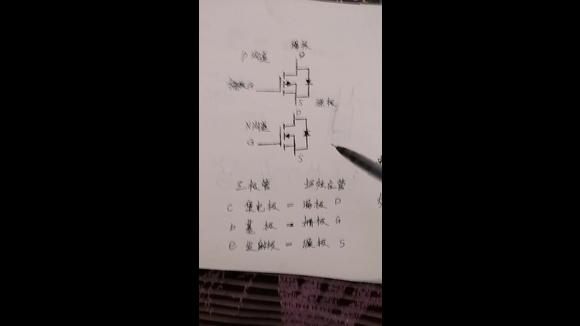 漏极
D
P沟道
栅极G
S
源极
D
N沟道
G
S
三极管 场效应管
C 集电极 = 漏极 D
b 基极 = 栅极 G
e 发射极 = 源极 S